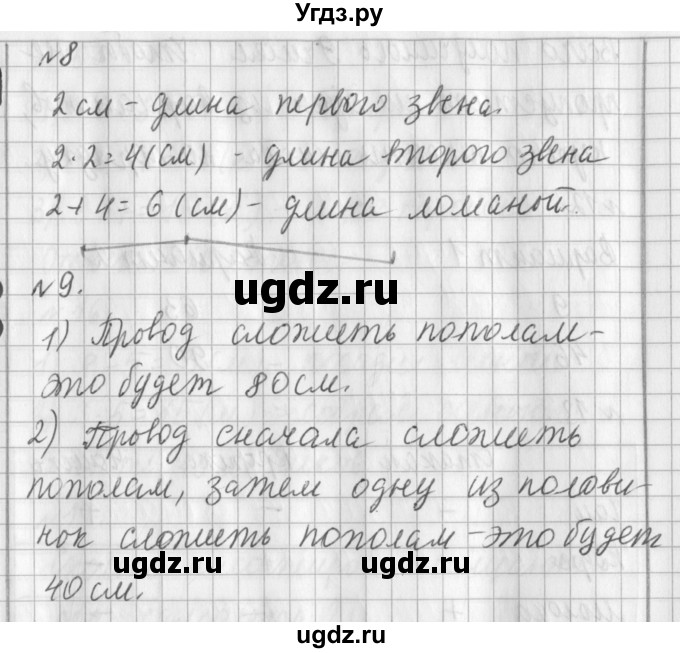 Угдз.ру
№8
2 см - длина первого звена.
2·2=4(см) - длина второго звена
2+4= 6 (см) - длина ломаной.
ugdz.ru
№9.
1) Провод сложить пополам -
это будет 80 см.
ugdz.ru
2) Провод сначала сложить
пополам, затем одну из полови-
нок сложить пополам - это будет
ugdz.ru ugdz.ru
40 см.
ugdz.ru